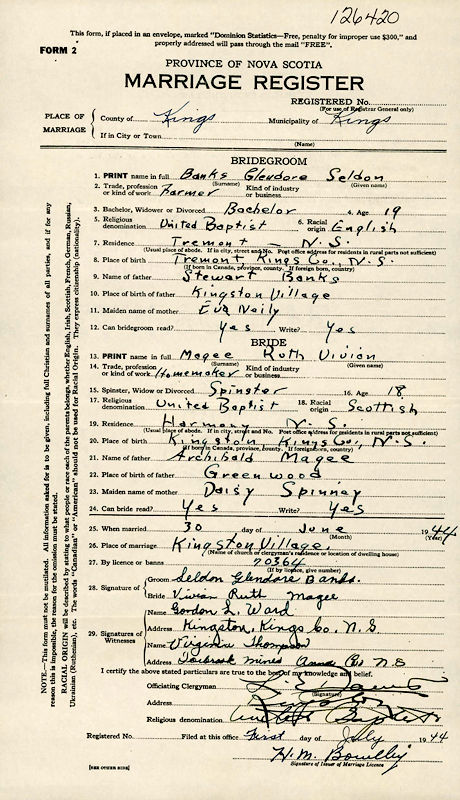 126420
This form, if placed in an envelope, marked "Dominion Statistics—Free, penalty for improper use $300," and
properly addressed will pass through the mail "FREE".
FORM 2
PROVINCE OF NOVA SCOTIA
MARRIAGE REGISTER
REGISTERED No.
(For use of Registrar General only)
PLACE OF MARRIAGE
County of Kings Municipality of Kings
If in City or Town
(Name)
BRIDEGROOM
1. PRINT name in full Banks Glendore Seldon
(Surname) (Given name)
2. Trade, profession or kind of work Farmer Kind of industry or business
3. Bachelor, Widower or Divorced Bachelor 4. Age 19
5. Religious denomination United Baptist 6. Racial origin English
7. Residence Tremont – N.S.
(Usual place of abode. If in city, street and No. Post office address for residents in rural parts not sufficient)
8. Place of birth Tremont, Kings Co., N.S.
(If born in Canada, province, county. If foreign born, country)
9. Name of father Stewart Banks
10. Place of birth of father Kingston Village
11. Maiden name of mother Eva Neily
12. Can bridegroom read? Yes Write? Yes
BRIDE
13. PRINT name in full Magee Ruth Vivian
(Surname) (Given name)
14. Trade, profession or kind of work Homemaker Kind of industry or business
15. Spinster, Widow or Divorced Spinster 16. Age 18
17. Religious denomination United Baptist 18. Racial origin Scottish
19. Residence Harmony N.S.
(Usual place of abode. If in city, street and No. Post office address for residents in rural parts not sufficient)
20. Place of birth Kingston Kings Co., N.S.
(If born in Canada, province, county. If foreign born, country)
21. Name of father Archibald Magee
22. Place of birth of father Greenwood
23. Maiden name of mother Daisy Spinney
24. Can bride read? Yes Write? Yes
25. When married 30 day of June 1944
(Month) (Year)
26. Place of marriage Kingston Village
(Name of church or clergyman's residence or location of dwelling house)
27. By licence or banns 70364
(If by licence, give number)
28. Signature of
Groom Seldon Glendore Banks.
Bride Vivian Ruth Magee
29. Signatures of Witnesses
Name Gordon L. Ward
Address Kingston, Kings Co. N.S
Name Virginia Thompson
Address Torbrook Mines Anna Co N.S
I certify the above stated particulars are true to the best of my knowledge and belief.
Officiating Clergyman
(Signature)
Address Kingston
Religious denomination United Baptist
Registered No. Filed at this office First day of July 1944
H.M.
Signature of Issuer of Marriage Licence
[SEE OTHER SIDE]
NOTE.—This form must not be mutilated. All information asked for is to be given, including full Christian and surnames of all parties, and if for any
reason this is impossible, the reason for the omission must be stated.
RACIAL ORIGIN will be described by stating to what people or race each of the parents belongs, whether English, Irish, Scottish, French, German, Russian,
Ukrainian (Ruthenian), etc. The words "Canadian" or "American" should not be used for Racial Origin. They express citizenship (nationality).